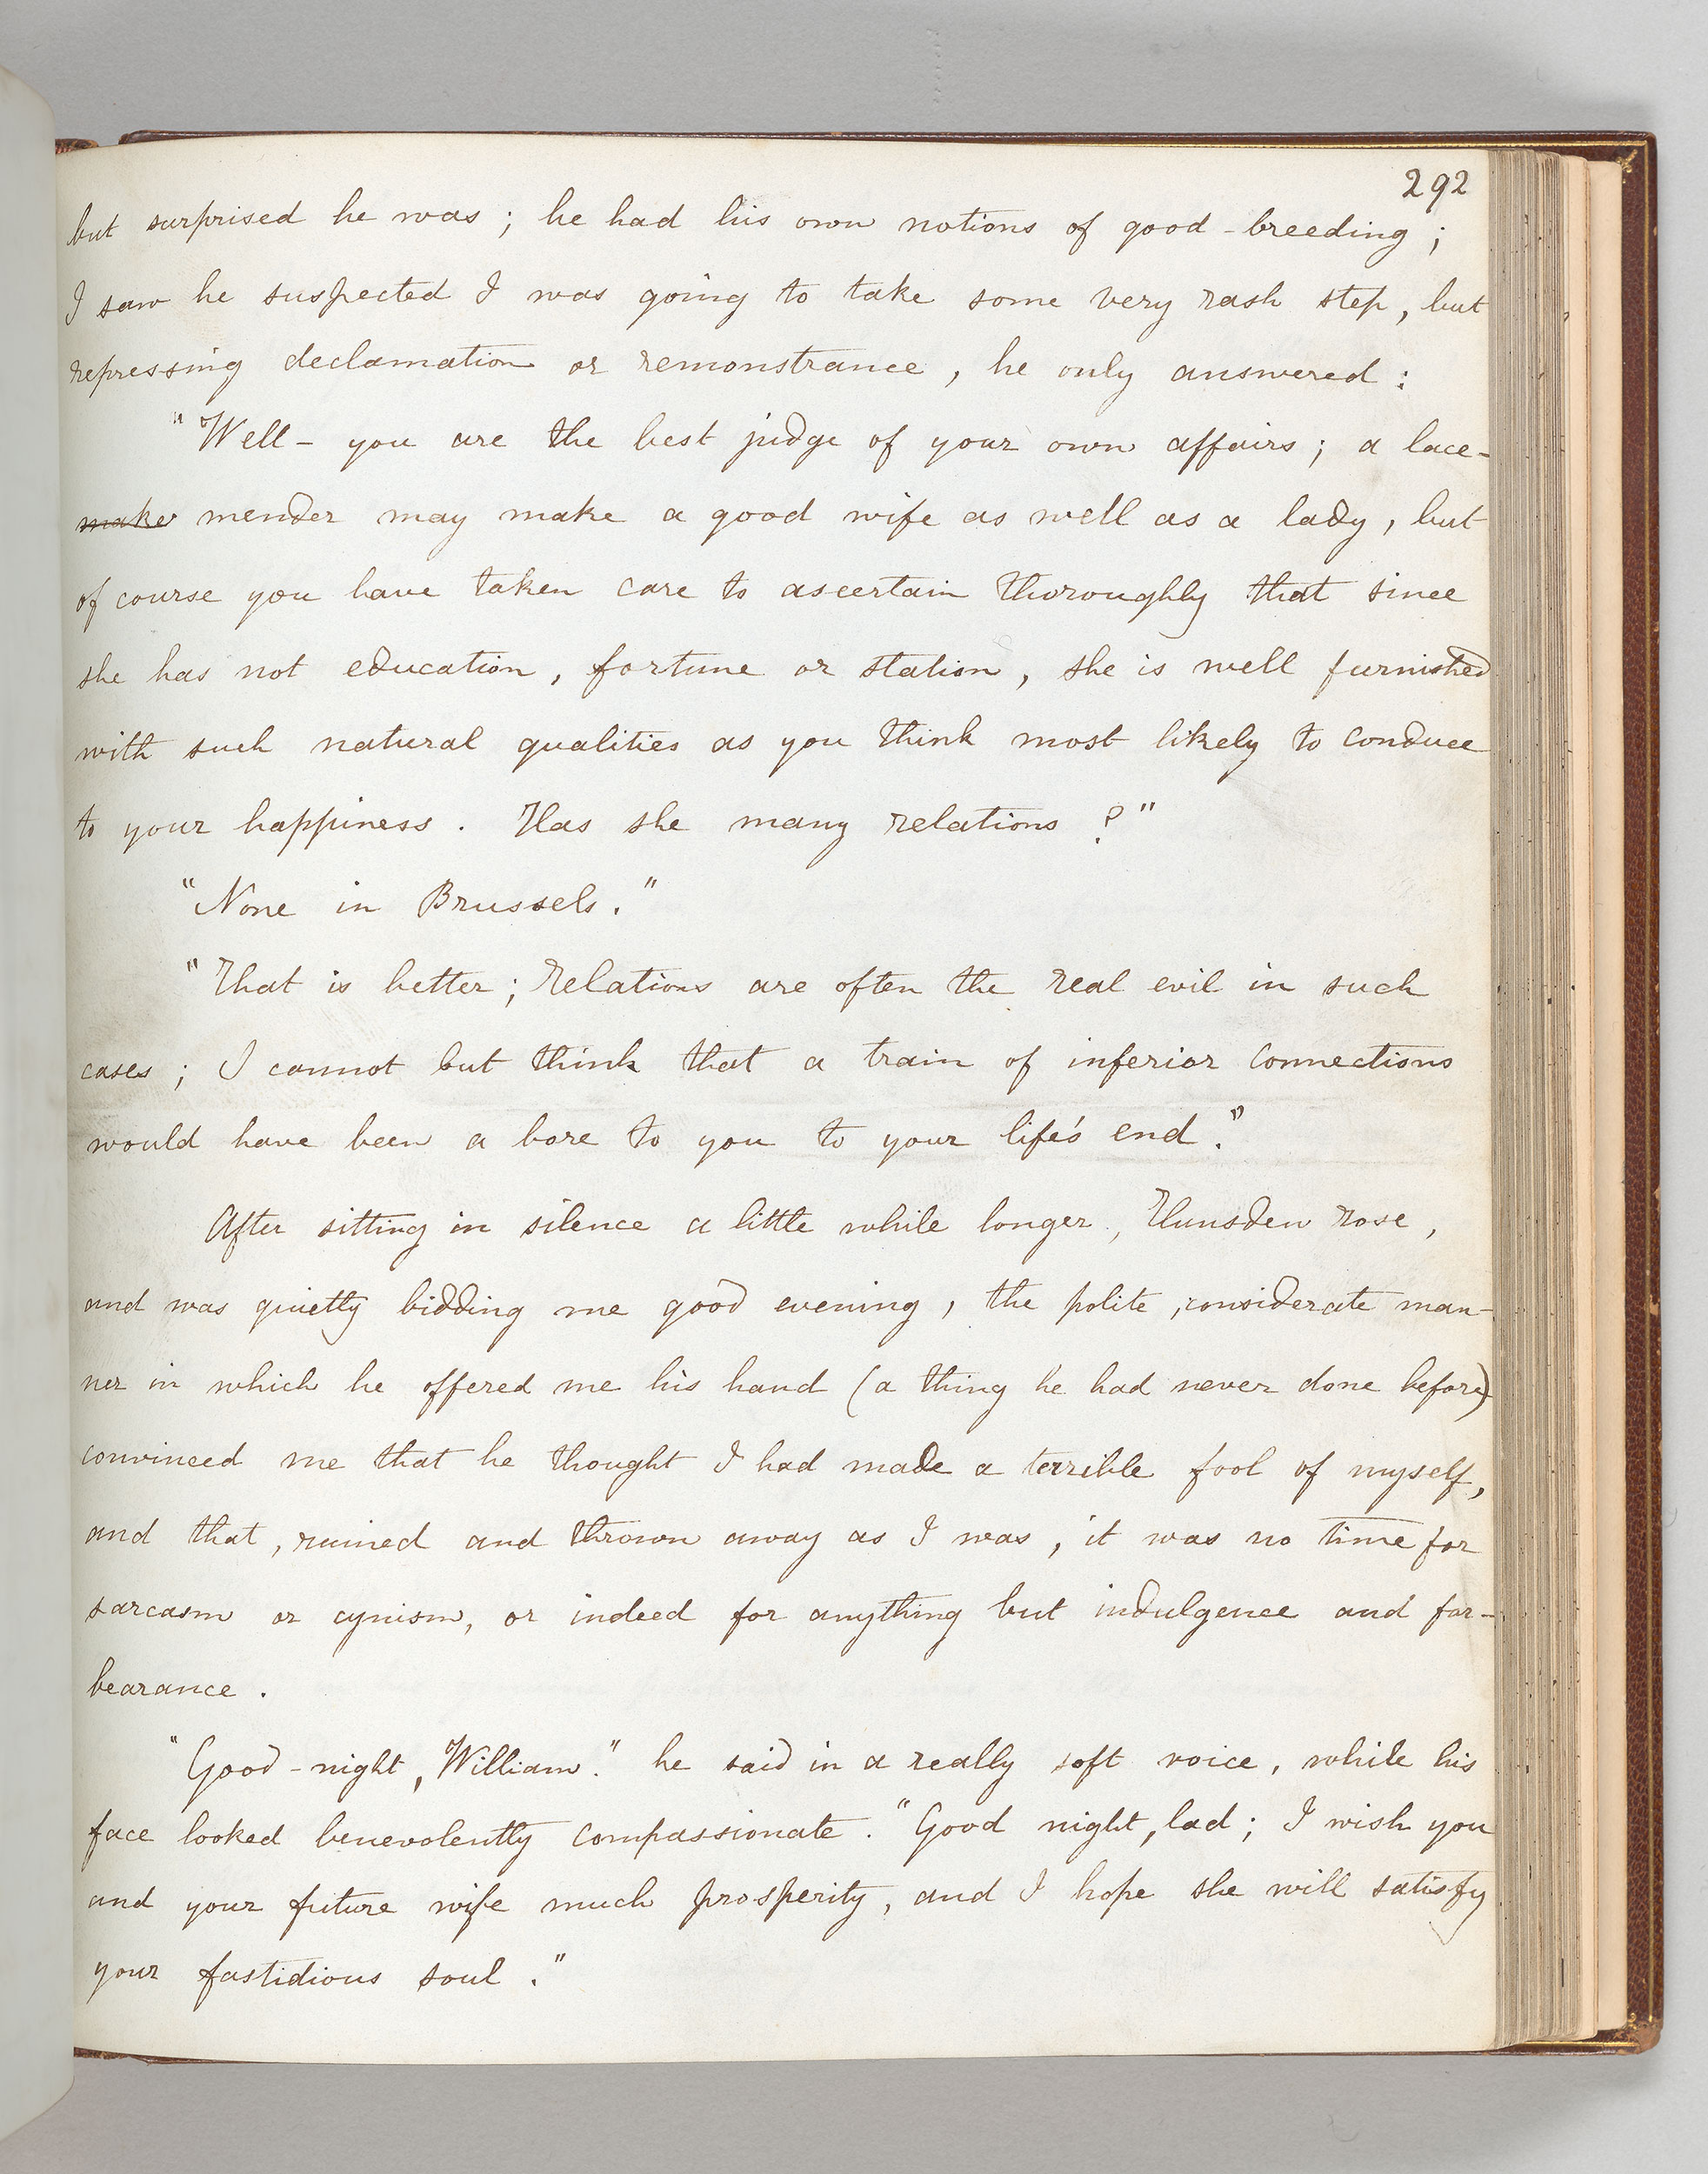 292
but surprised he was ; he had his own notions of good-breeding ;
I saw he suspected I was going to take some very rash step, but
repressing declamation or remonstrance, he only answered :
"Well - you are the best judge of your own affairs ; a lace-
make mender may make a good wife as well as a lady, but
of course you have taken care to ascertain thoroughly that since
she has not education, fortune or station, she is well furnished
with such natural qualities as you think most likely to conduce
to your happiness. Has she many relations ?"
"None in Brussels."
"That is better ; relations are often the real evil in such
cases ; I cannot but think that a train of inferior connections
would have been a bore to you to your life's end."
After sitting in silence a little while longer, Hunsden rose,
and was quietly bidding me good evening, the polite, considerate man-
ner in which he offered me his hand (a thing he had never done before)
convinced me that he thought I had made a terrible fool of myself,
and that, ruined and thrown away as I was, it was no time for
sarcasm or cynism, or indeed for anything but indulgence and for-
bearance.
"Good-night, William." he said in a really soft voice, while his
face looked benevolently compassionate. "Good night, lad ; I wish you
and your future wife much prosperity, and I hope she will satisfy
your fastidious soul."